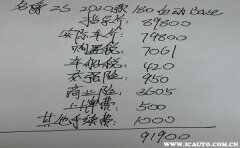 名爵ZS 2020款 180 自动 BASE
指导价 89800
实际车价 79800
购置税 7061
车船税 420
交强险 950
商业险 3605
上牌费 500
其他手续费 1000
91900
WWW.ICAUTO.COM.CN